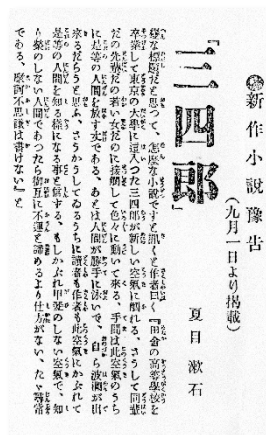 新作小説豫告
(九月一日より掲載)
『三四郎』
夏目漱石
な標題だと思つて、怎麼な小説ですと訊くと作者曰く『田舎の高等學校を
卒業して東京の大學に這入つた三四郎が新しい空氣に觸れる、さうして同輩
だの先輩だの若い女だのに接觸して色々に動いて来る、手間は此空氣のうち
に是等の人間を放す丈である、あとは人間が勝手に泳いで、自ら波瀾が出
來るだらうと思ふ、さうかうしてゐるうちに讀者も作者も此空氣にかぶれて
是等の人間を知る樣になる事と信ずる、もしかぶれ甲斐のしない空氣で、知
り榮のしない人間であつたら御互に不運と諦めるより仕方がない、たゞ尋常
である、摩訶不思議は書けない』と